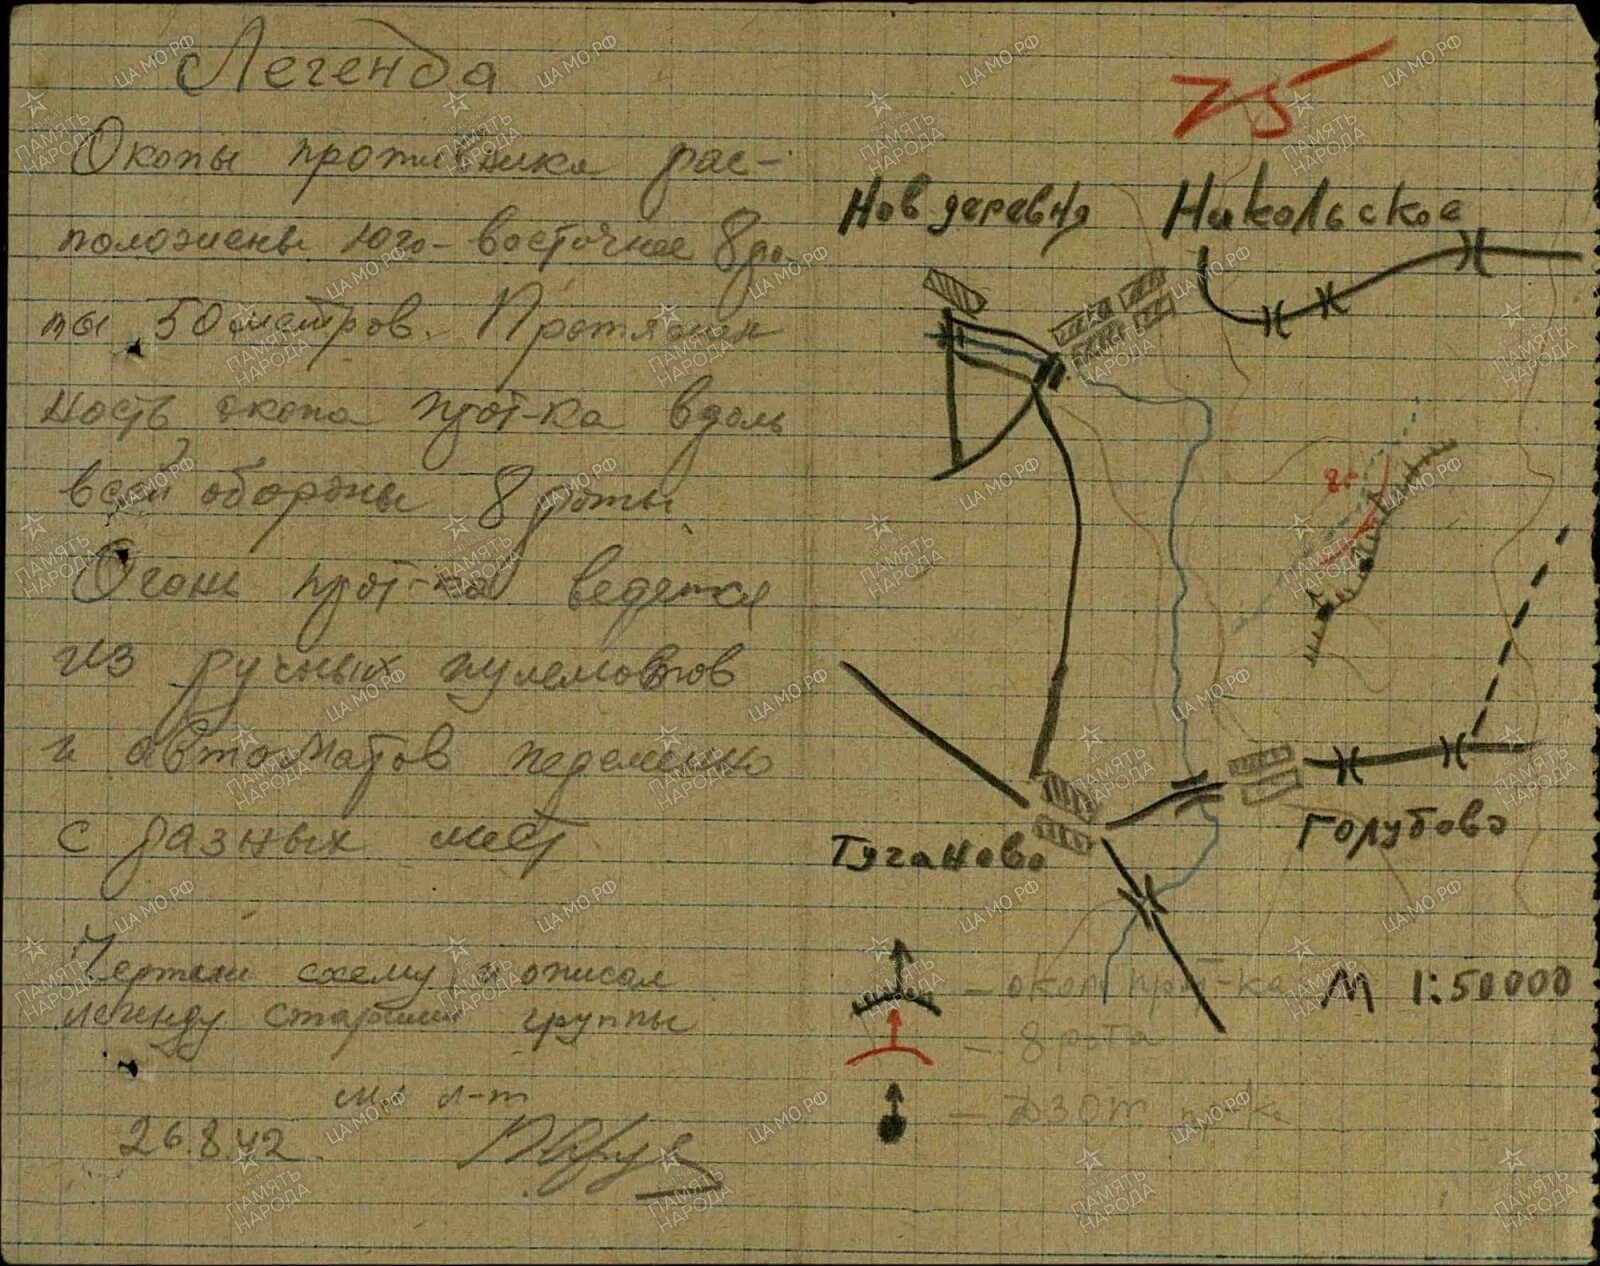 Легенда
Окопы противника рас-
положены юго-восточнее 8 ро-
ты 50 метров. Протяжен
ность окопа прот-ка вдоль
всей обороны 8 роты.
Огонь прот-ка ведется
из ручных пулеметов
и автоматов переменно
с разных мест
Чертили схему и описал
легенду старший группы
мл. л-т
26.8.42.
25
Нов деревня
Никольское
8р
Туганово
Голубово
М 1:50000
– окоп прот-ка
– 8 рота
– ДЗОТ пр-ка
ЦА МО РФ
ПАМЯТЬ НАРОДА